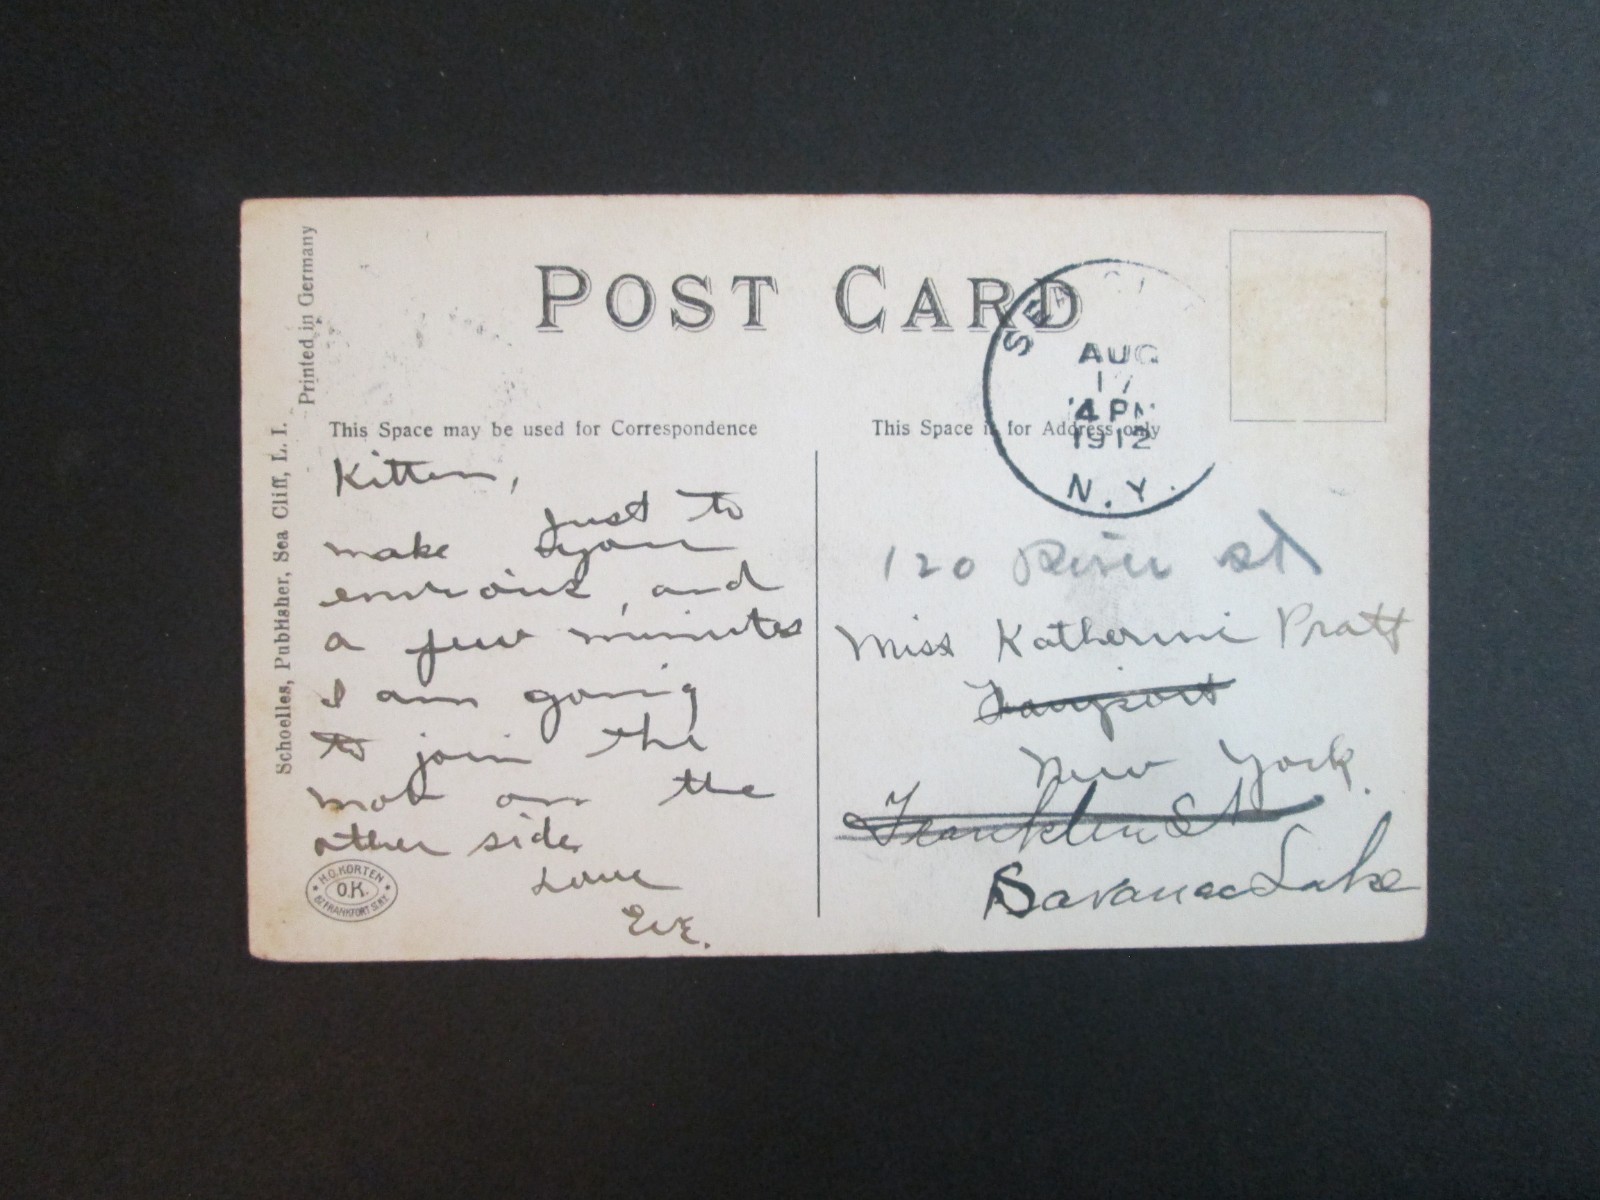 POST CARD
Printed in Germany
Schoelles, Publisher, Sea Cliff, L. I.
This Space may be used for Correspondence
Kitten,
Just to
make you
envious, and
a few minutes
I am going
to join the
mob on the
other side
Love
Eve.
H.O. KORTEN
O.K.
FRANKFORT ST. N.Y.
This Space is for Address only
SEA
AUG
17
4 PM
1912
N.Y.
120 River St
Miss Katherine Pratt
Fairport
New York.
Franklin St
Saranac Lake